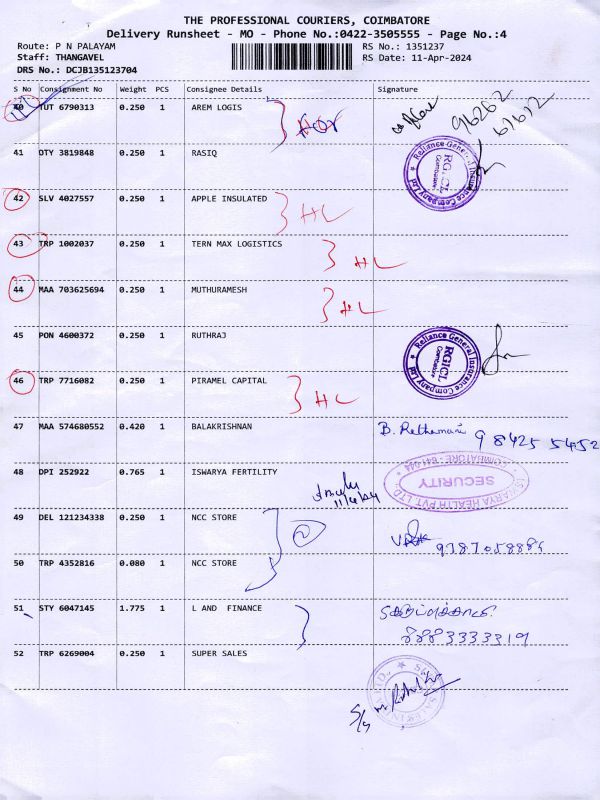 THE PROFESSIONAL COURIERS, COIMBATORE
Delivery Runsheet - MO - Phone No.:0422-3505555 - Page No.:4
Route: P N PALAYAM
RS No.: 1351237
Staff: THANGAVEL
RS Date: 11-Apr-2024
DRS No.: DCJB135123704
S No Consignment No Weight PCS Consignee Details Signature
40 TUT 6790313 0.250 1 AREM LOGIS
96262
Reliance General Insurance Company Ltd
RGICL
Coimbatore
41 OTY 3819848 0.250 1 RASIQ
42 SLV 4027557 0.250 1 APPLE INSULATED
HL
43 TRP 1002037 0.250 1 TERN MAX LOGISTICS
HL
44 MAA 703625694 0.250 1 MUTHURAMESH
HL
45 PON 4600372 0.250 1 RUTHRAJ
Reliance General Insurance Company Ltd
RGICL
Coimbatore
46 TRP 7716082 0.250 1 PIRAMEL CAPITAL
HL
47 MAA 574680552 0.420 1 BALAKRISHNAN
B. 98425 5452
48 DPI 252922 0.765 1 ISWARYA FERTILITY
11/4/24
ISWARYA HEALTH PVT. LTD.,
SECURITY
COIMBATORE - 641 044
49 DEL 121234338 0.250 1 NCC STORE
2
50 TRP 4352816 0.080 1 NCC STORE
51 STY 6047145 1.775 1 L AND FINANCE
8883333319
52 TRP 6269004 0.250 1 SUPER SALES